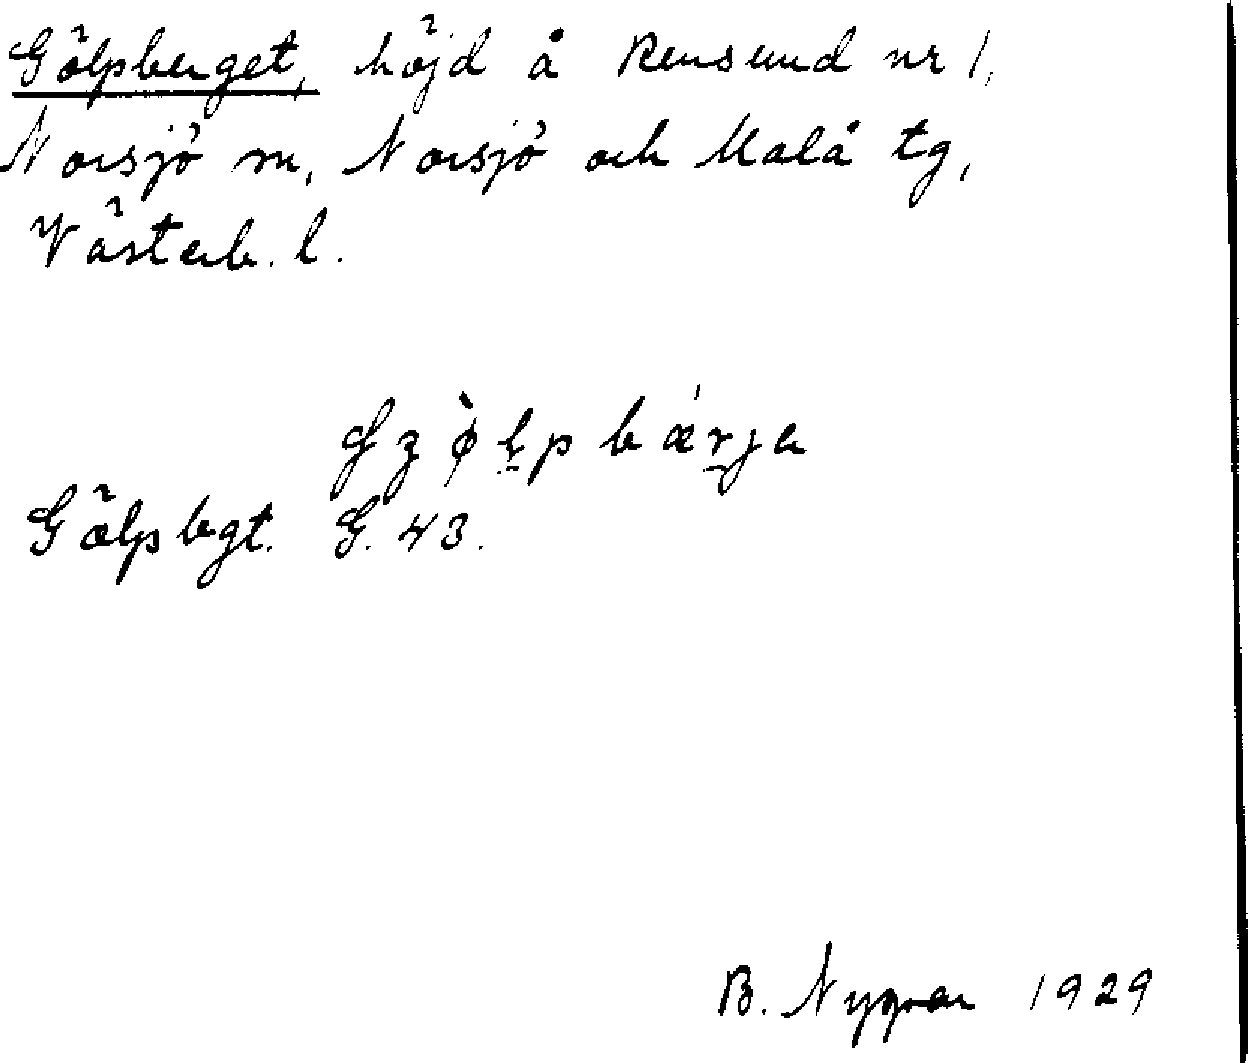 Gölpberget, höjd å Rensund nr 1,
Norsjö sn, Norsjö och Malå tg,
Västerb. l.
Gölpbgt. G. 43.
B. 1929